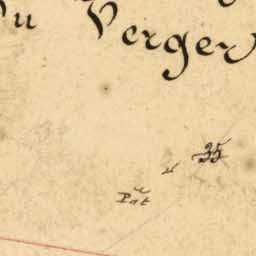 Du Verger
35
Pat